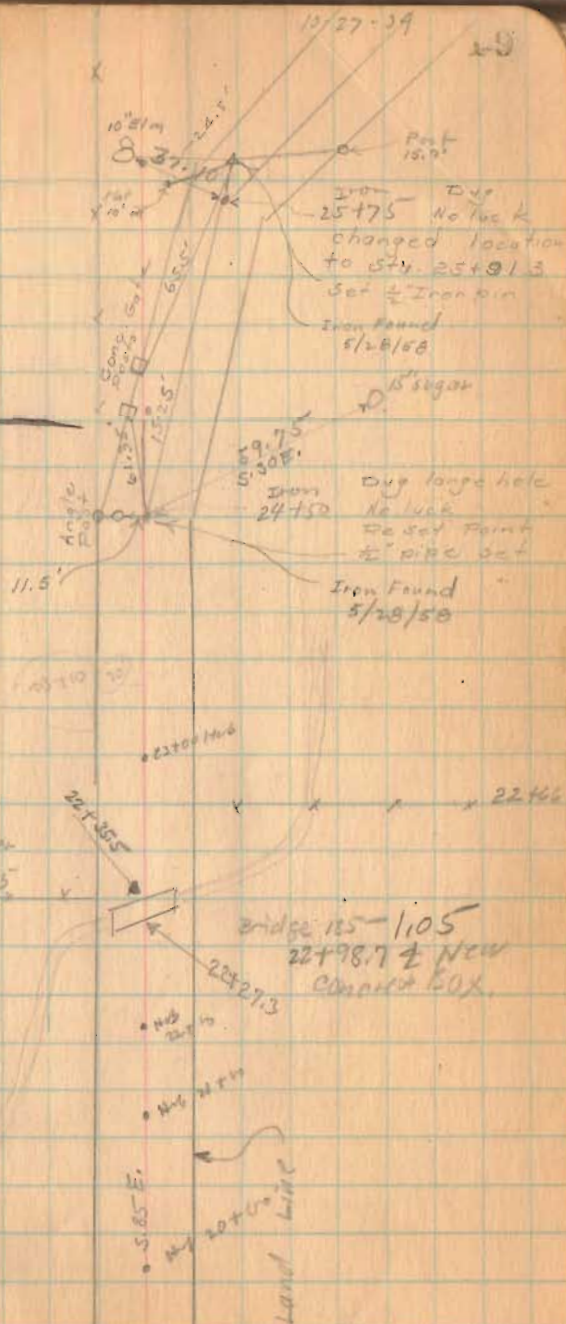 10-27-34
10" Elm
24.5'
37.10
Post
15.7'
Iron Dug
25+75 No luck
changed location
to Sta. 25+91.3
Set ½" Iron pin
Iron Found
5/28/58
65.5'
Conc. Gate
Posts
15.25'
61.35'
15" sugar
59.75
S.30E.
Iron Dug large hole
24+50 No luck
Re set Point
½" pipe set
Angle
Post
11.5'
Iron Found
5/28/58
23+00 Hub
22+66
22+35.5
Bridge 125-1.05
22+98.7 ¢ New
Concrete Box.
22+27.3
Hub
Hub
Hub 20+50
S.85E.
Land Line